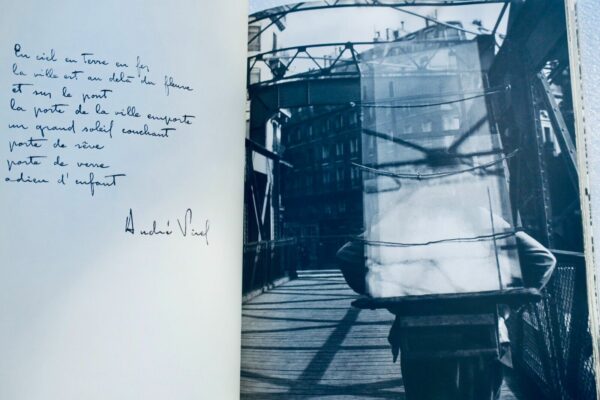 En ciel en terre en fer
la ville est au delà du fleuve
et sur le pont
la porte de la ville emporte
un grand soleil couchant
porte de rêve
porte de verre
adieu d'enfant
André Virel